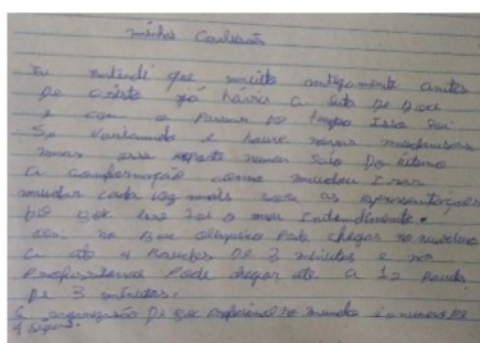 minha Conclusão
Eu entendi que muito antigamente antes
De cristo já havia a luta De Boxe
e com o Passar do tempo Isso foi
Se e houve novas mudanças
mas esse esporte nunca saio Do ritmo
a como mudou I nas
mudar cada vez mais as apresentações
Do Box Esse foi o meu Intendimento.
no Boxe olímpico Pode chegar no
a até 4 Rounds De 3 minutos e no
Profissional Pode chegar até a 12 Rounds
De 3 minutos.
a organização De Box Profissional no mundo é o numero De
4